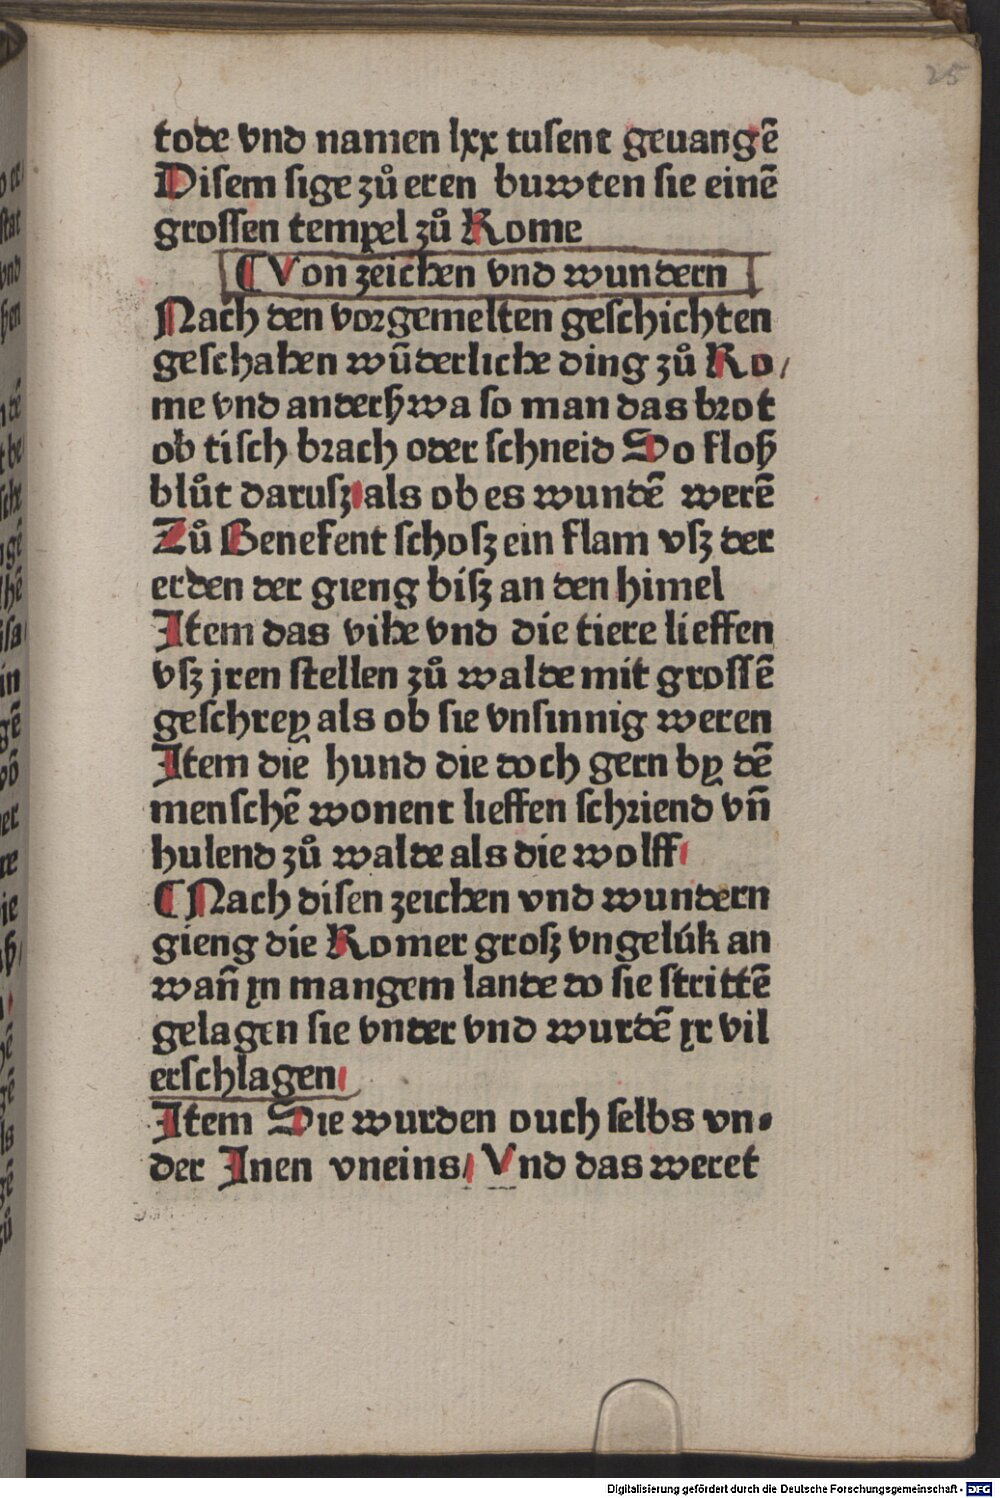 25
tode vnd namen lxx tusent geuangē
Disem sige zů eren buwten sie einē
grossen tempel zů Rome
¶ Von zeichen vnd wundern
Nach den vorgemelten geschichten
geschahen wūderliche ding zů Ro/
me vnd anderßwa so man das brot
ob tisch brach oder schneid So floß
blůt darusz als ob es wundē werē
Zů Benefent schosz ein flam vsz der
erden der gieng bisz an den himel
Item das vihe vnd die tiere lieffen
vsz jren stellen zů walde mit grossē
geschrey als ob sie vnsinnig weren
Item die hund die doch gern by dē
menschē wonent lieffen schriend vn̄
hulend zů walde als die wolff
¶ Nach disen zeichen vnd wundern
gieng die Romer grosz vngelúk an
wan̄ yn mangem lande do sie strittē
gelagen sie vnder vnd wurdē yr vil
erschlagen
Item Sie wurden ouch selbs vn-
der Inen vneins/ Vnd das weret
Digitalisierung gefördert durch die Deutsche Forschungsgemeinschaft - DFG